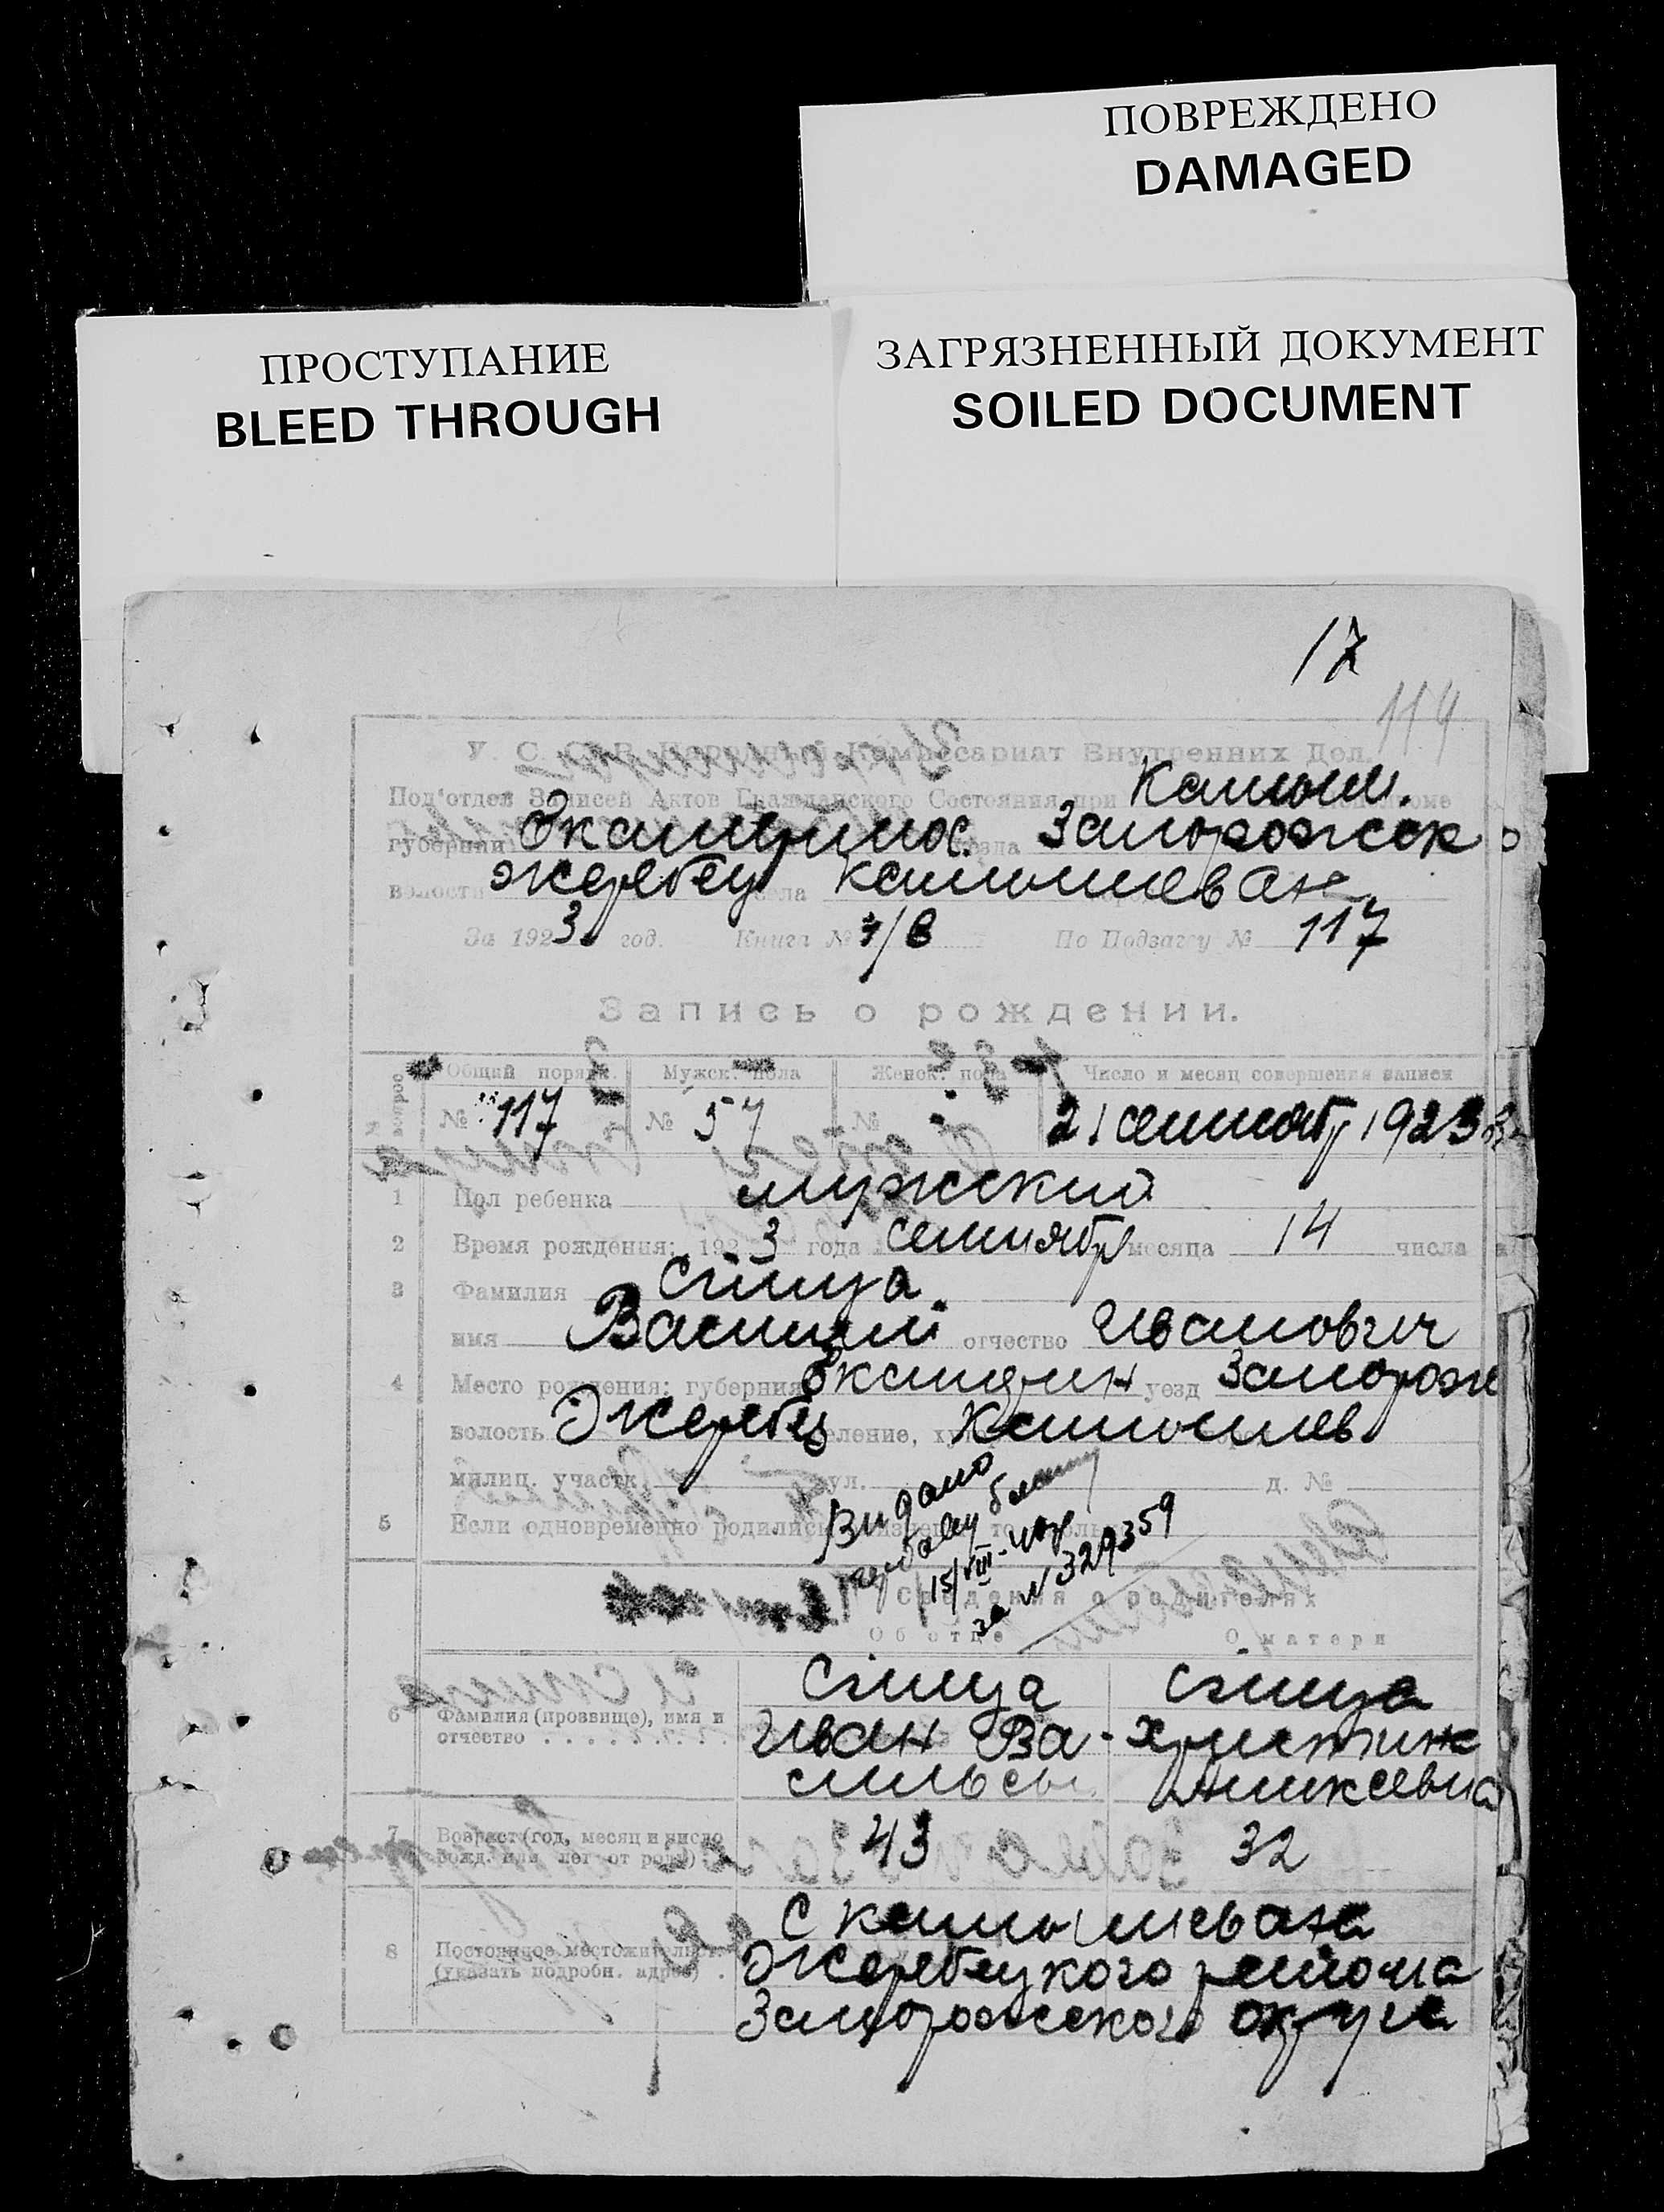 ПОВРЕЖДЕНО
DAMAGED
ПРОСТУПАНИЕ
BLEED THROUGH
ЗАГРЯЗНЕННЫЙ ДОКУМЕНТ
SOILED DOCUMENT
17
114
У. С. С. Р. Народный Комиссариат Внутренних Дел.
Под'отдел Записей Актов Гражданского Состояния при Камыш.
губернии Екатерин уезда Запорожск
волости Жеребец села Камышеваха
За 1923 год. Книга № По Подзагсу № 117
Запись о рождении.
Общий порядк. Мужск. пола Женск. пола Число и месяц совершения записи
№ 117 № 57 № 21 сентябр 1923
1 Пол ребенка мужский
2 Время рождения: 1923 года сентября месяца 14 числа
3 Фамилия Спица
имя Василий отчество Иванович
4 Место рождения: губерния Екатерин уезд Запорож
волость Жеребец Камышев
милиц. участк. ул. д. №
5 Если одновременно родились
Видано
15/VIII-
за № 329359
Сведения о родителях
Об отце О матери
6 Фамилия (прозвище), имя и отчество
Спица Спица
Иван Ва- Христина
сильев Аникеевна
7 Возраст (год, месяц и число рожд. или лет от роду) 43 32
8 Постоянное местожительст. (указать подробн. адрес)
С Камышеваха
Жеребецкого района
Запорожского округа